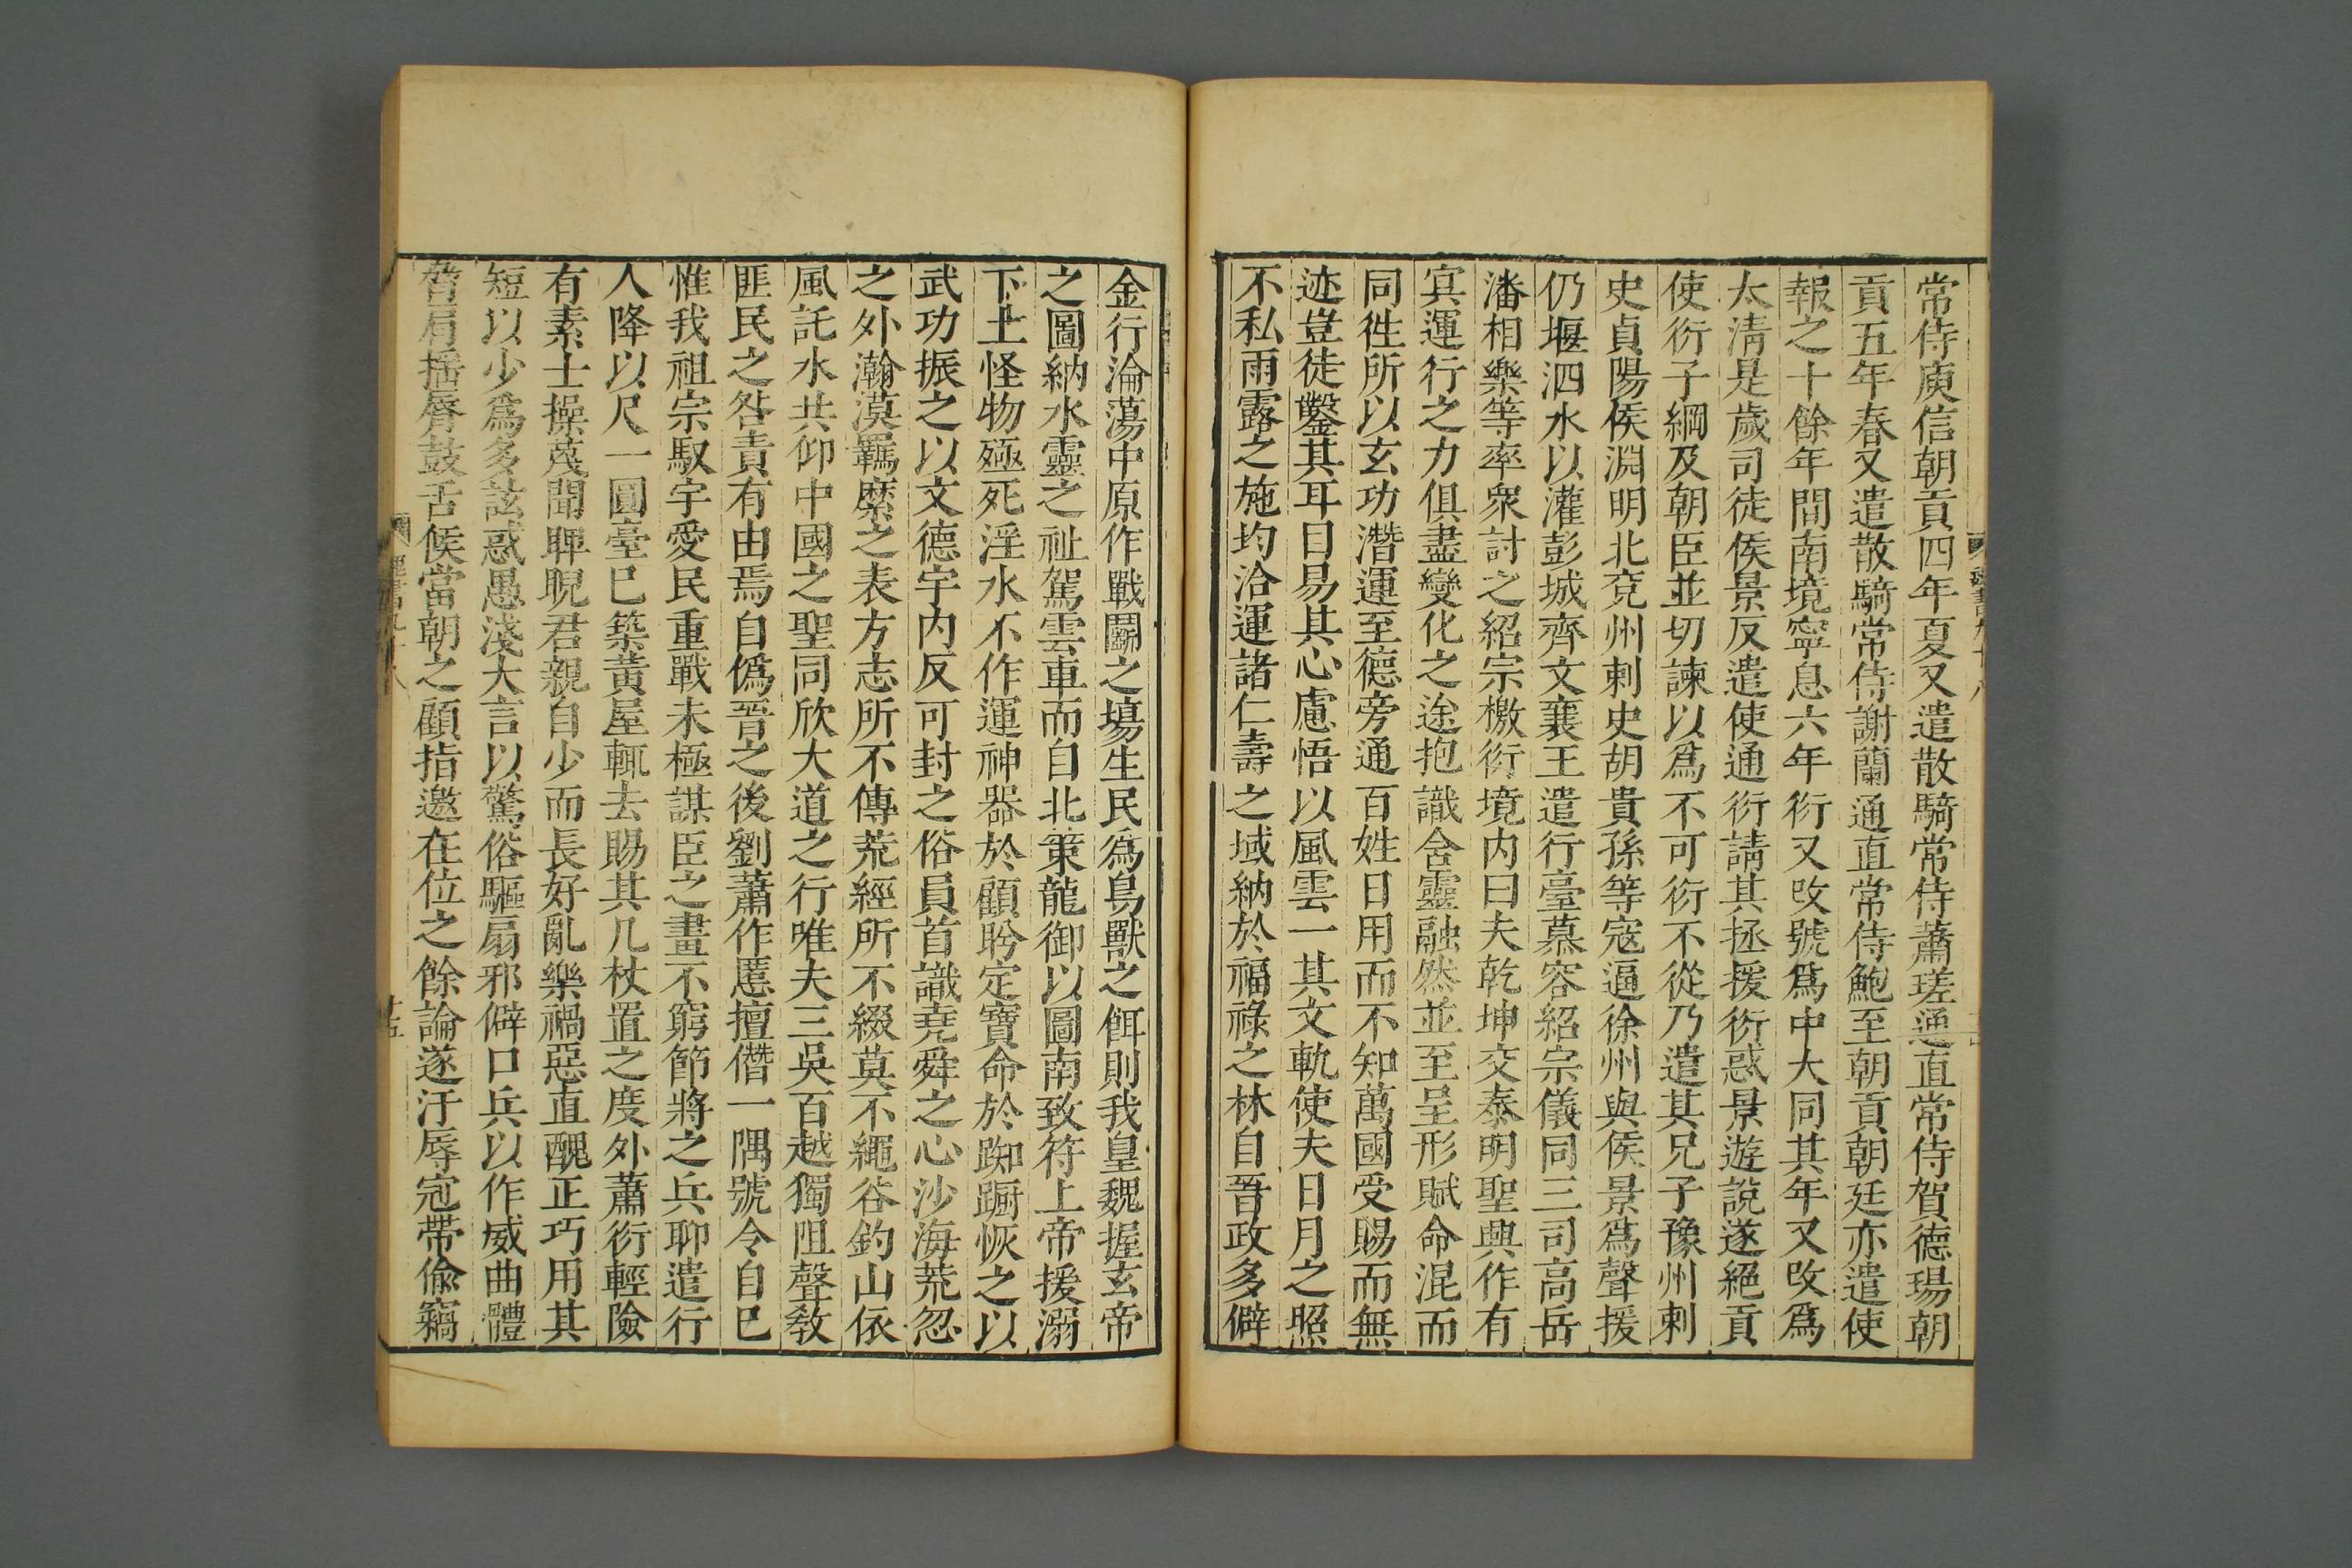 常侍庾信朝貢四年夏又遣散騎常侍蕭瑳通直常侍賀德瑒朝
貢五年春又遣散騎常侍謝蘭通直常侍鮑至朝貢朝廷亦遣使
報之十餘年間南境寧息六年衍又改號爲中大同其年又改爲
太清是歲司徒侯景反遣使通衍請其拯援衍惑景遊說遂絕貢
使衍子綱及朝臣並切諫以爲不可衍不從乃遣其兄子豫州刺
史貞陽侯淵明北兗州刺史胡貴孫等寇逼徐州與侯景爲聲援
仍堰泗水以灌彭城齊文襄王遣行臺慕容紹宗儀同三司高岳
潘相樂等率衆討之紹宗檄衍境内曰夫乾坤交泰明聖興作有
㝠運行之力俱盡變化之途抱識含靈融然並至呈形賦命混而
同徃所以玄功潛運至德旁通百姓日用而不知萬國受賜而無
迹豈徒鑿其耳目易其心慮悟以風雲一其文軌使夫日月之照
不私雨露之施均洽運諸仁壽之域納於福祿之林自晉政多僻
金行淪蕩中原作戰鬭之場生民爲鳥獸之餌則我皇魏握玄帝
之圖納水靈之祉駕雲車而自北策龍御以圖南致符上帝援溺
下土怪物殛死淫水不作運神器於顧眄定寶命於踟蹰恢之以
武功振之以文德宇内反可封之俗員首識堯舜之心沙海荒忽
之外瀚漠羈縻之表方志所不傳荒經所不綴莫不繩谷釣山依
風託水共仰中國之聖同欣大道之行唯夫三吳百越獨阻聲敎
匪民之咎責有由焉自僞晉之後劉蕭作慝擅僭一隅號令自巳
惟我祖宗馭宇愛民重戰未極謀臣之畫不窮節將之兵聊遣行
人降以尺一圓臺巳築黃屋輒去賜其几杖置之度外蕭衍輕險
有素士操蔑聞睥睨君親自少而長好亂樂禍惡直醜正巧用其
短以少爲多訟惑愚淺大言以驚俗驅扇邪僻口兵以作威曲體
脅肩搖脣鼓舌候當朝之顧指邀在位之餘論遂汙辱冠帶偷竊